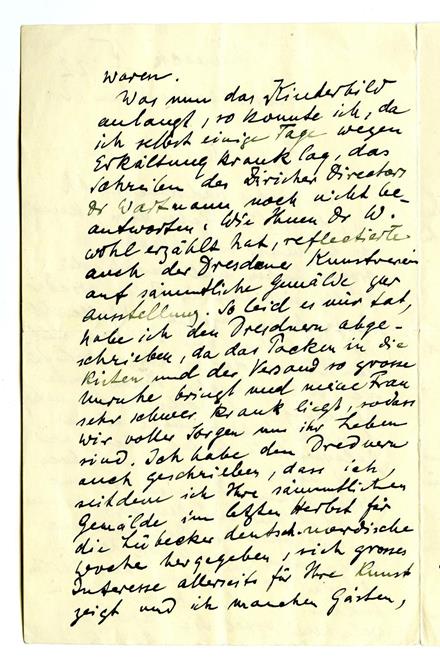 waren.
Was nun das Kinderbild
anlangt, so konnte ich, da
ich selbst einige Tage wegen
Erkältung krank lag, das
Schreiben des Züricher Directors
Dr Wartmann noch nicht be-
antworten. Wie Ihnen Dr W.
wohl erzählt hat, reflectierte
auch der Dresdener Kunstverein
auf sämmtliche Gemälde zur
Ausstellung. So leid es mir tat,
habe ich den Dresdnern abge-
schrieben, da das Packen in die
Kisten und der Versand so grosse
Unruhe bringt und meine Frau
sehr schwer krank liegt, sodass
wir voller Sorgen um ihr Leben
sind. Ich habe den Drednern
auch geschrieben, dass ich,
seitdem ich Ihre sämmtlichen
Gemälde im letzten Herbst für
die Lübecker deutsch-nordische
Woche hergegeben, sich grosses
Interesse allerseits für Ihre Kunst
zeigt und ich manchen Gästen,